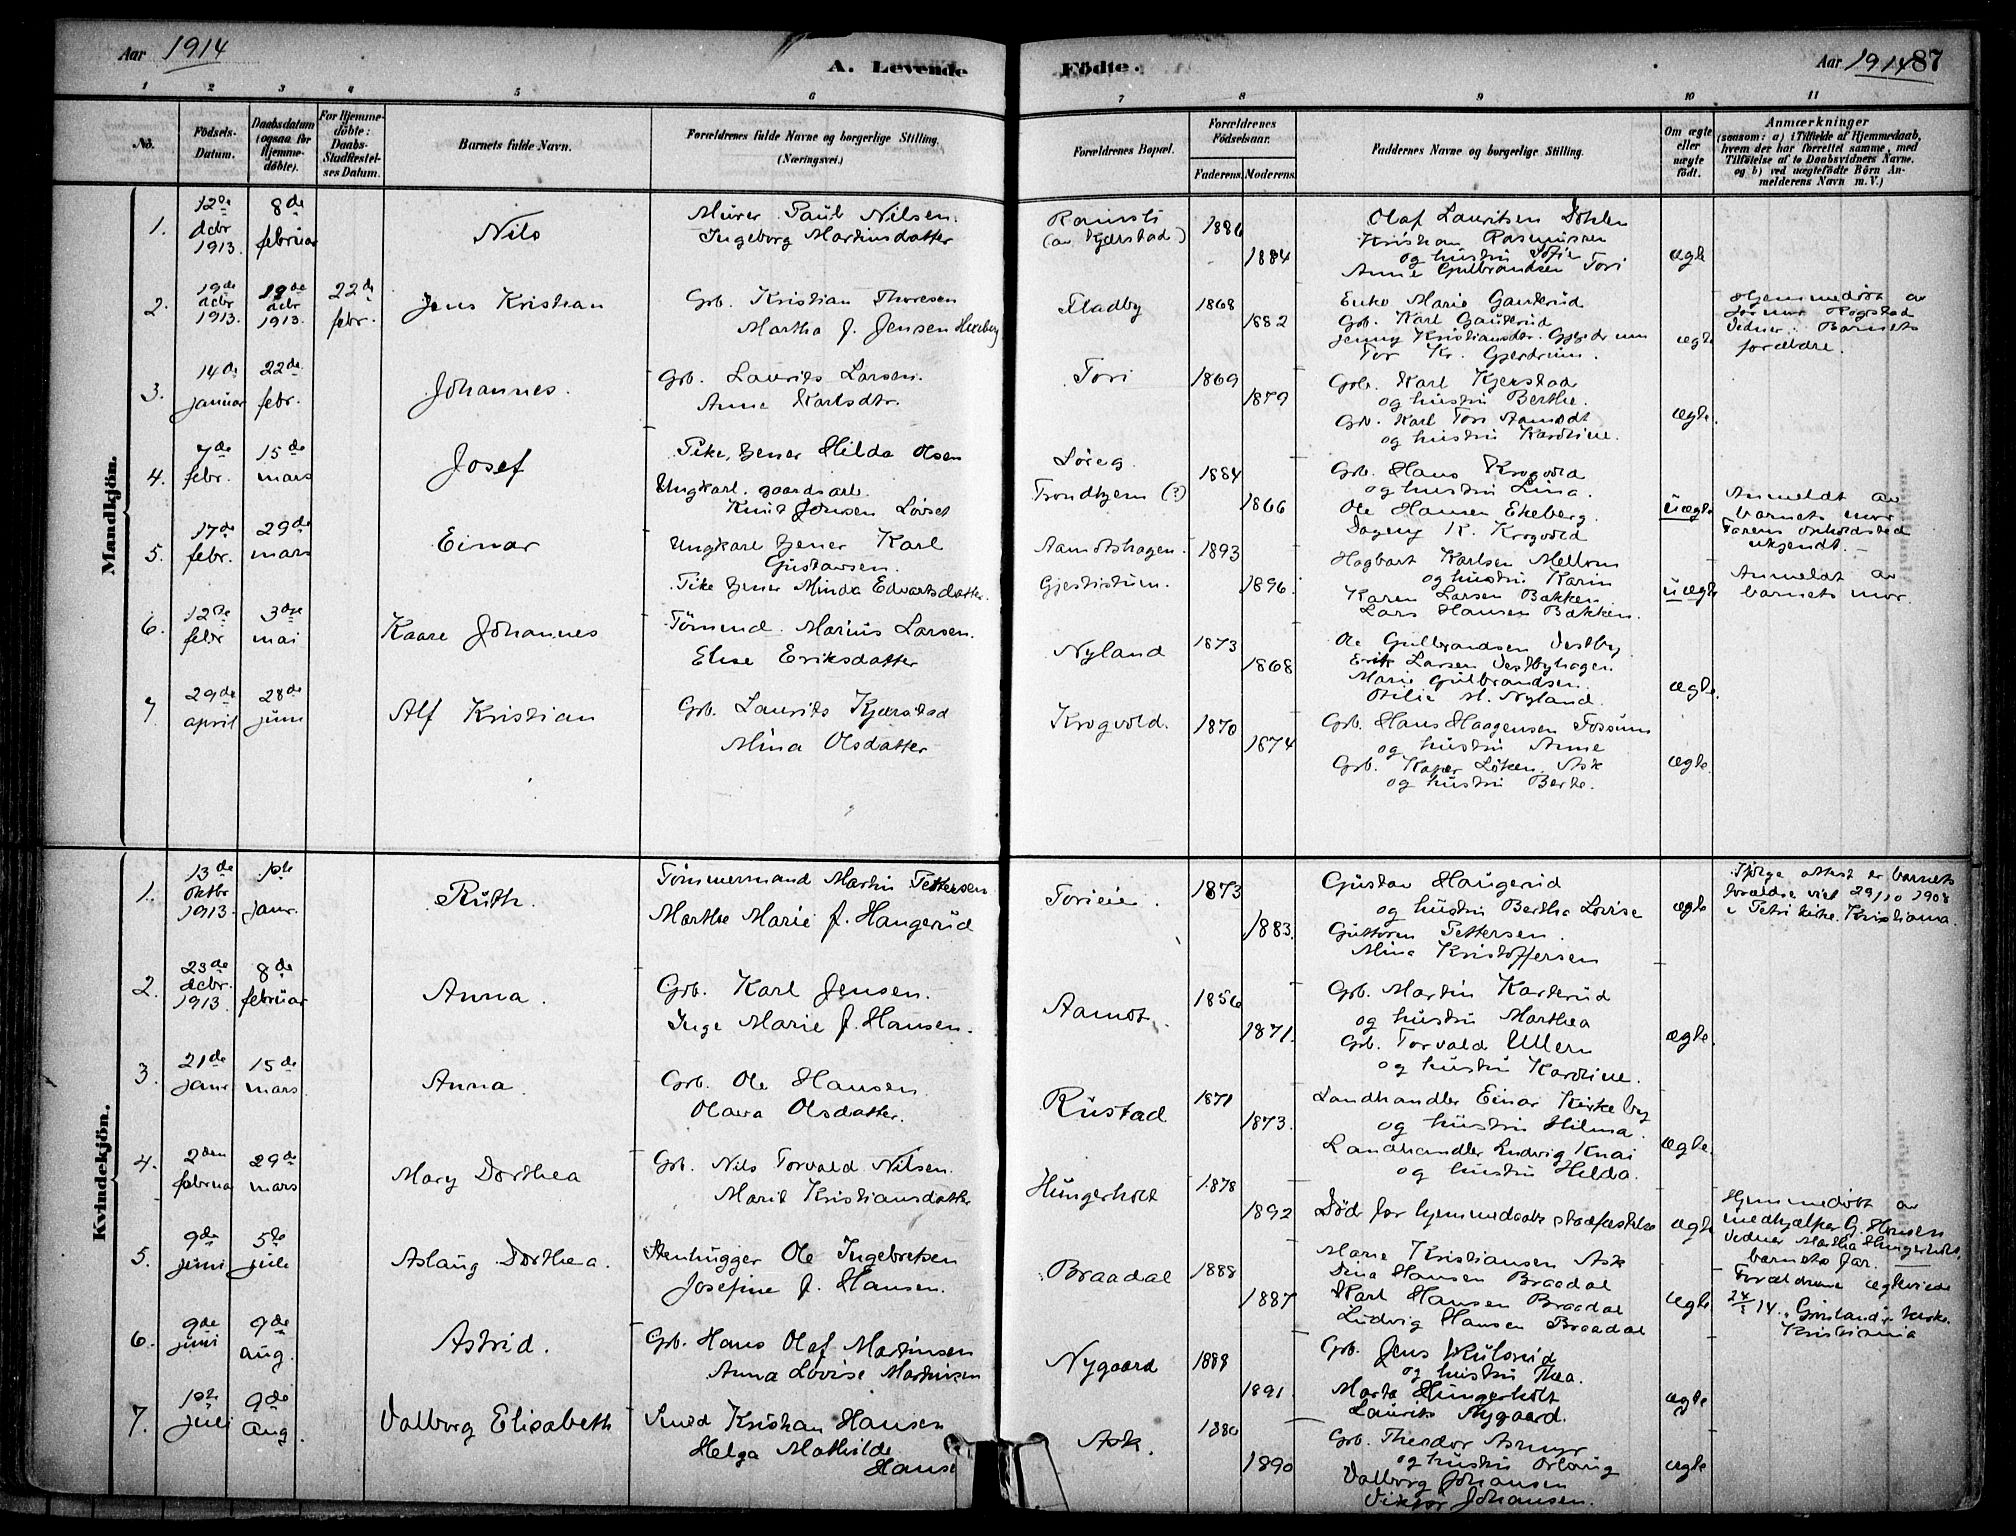 Aar 1914
A. Levende Födte.
Aar 1914 87
1 2 3 4 5 6 7 8 9 10 11
No.
Födsels-Datum.
Daabsdatum (ogsaa for Hjemme-döbte).
For Hjemme-döbte: Daabs-Stadfæstel-ses Datum.
Barnets fulde Navn.
Forældrenes fulde Navne og borgerlige Stilling. (Næringsvei.)
Forældrenes Bopæl.
Forældrenes Födselsaar.
Faderens. Moderens.
Faddernes Navne og borgerlige Stilling.
Om ægte eller uægte födt.
Anmærkninger
(saasom: a) i Tilfælde af Hjemmedaab, hvem der har forrettet samme, med Tilföielse af to Daabsvidners Navne. og b) ved uægtefödte Börn An-melderens Navn m. V.)
Mandkjön.
1. 12te decbr 1913 8de februar
Nils
Murer Paul Nilsen.
Ingeborg Martinsdatter
Ramsti
(av Kjærstad)
1886
1884
Olaf Lauritsen
Kristian Rasmussen
og hustru Sofie
Anne Gulbrandsen Tori
ægte
2. 19de decbr 1913. 19de decbr 1913. 22de febr.
Jens Kristian
Grb. Kristian Thoresen
Martha J. Jensen Hexeberg
Fladby
1868
1882
Enke Marie Gauterud
Grb. Karl Gauterud
Jenny Kristiansdtr. Gjerdrum
Tor Kr. Gjerdrum.
ægte
Hjemmedöbt av
jormor Rogstad
Vidner: Barnets
forældre.
3. 14de januar 22de febr.
Johannes.
Grb. Laurits Larsen.
Anne Karlsdtr.
Tori
1869
1879
Grb. Karl Kjerstad
og hustru Berthe.
Grb. Karl Tori Aamodt
og hustru Karoline.
ægte.
4. 7de febr. 15de mars
Josef
Pike, tjener Hilda Olsen
Ungkarl, gaardsarb.
Knut Jensen Lövset
Löreg.
Trondhjem (?)
1884
1866
Grb. Hans Krogvold
og hustru Lina.
Ole Hansen Ekeberg.
Dagny K. Krogvold
uægte
Anmeldt av
barnets mor
Farens opholdssted
ukjendt.
5. 17de febr. 29de mars
Einar
Ungkarl tjener Karl
Gustavsen.
Pike tjener Minda Edvartsdatter.
Aamotshagen.
Gjestistuen.
1893
1896.
Hagbart Karlsen Mellom
og hustru Karin
Karen Larsen Bakken.
Lars Hansen Bakken.
uægte
Anmeldt av
barnets mor.
6. 12te febr 3die mai
Kaare Johannes
Tömmd. Marius Larsen.
Elise Eriksdatter
Nyland
1873
1868
Ole Gulbrandsen Vestby
Erik Larsen Vestbyhagen
Marie Gulbrandsen.
Otilie M. Nyland.
ægte.
7. 29de april 28de juni
Alf Kristian
Grb. Laurits Kjærstad
Mina Olsdatter
Krogvold.
1870
1874
Grb. Hans Haagensen Fossum
og hustru Anne
Grb. Kasper Löken Ask
og hustru Berte.
ægte.
Kvindekjön.
1. 13de oktbr 1913. 1ste janr.
Ruth.
Tömmermand Martin Pettersen
Marthe Marie f. Haugerud
Torieie.
1873
1883.
Gustav Haugerud
og hustru Bertha Lovise
Guttorm Pettersen.
Mina Kristoffersen
ægte
Ifölge attest er barnets
forældre viet 29/10 1908
i Petri kirke. Kristiania.
2. 23de decbr. 1913. 8de februar
Anna.
Grb. Karl Jensen.
Inge Marie f. Hansen.
Aamot.
1856
1871.
Grb. Martin Karterud
og hustru Marthea
Grb. Torvald Ullern
og hustru Karoline.
ægte.
3. 21de janr 15de mars
Anna.
Grb. Ole Hansen
Olava Olsdatter.
Rustad
1871
1873.
Landhandler Einar Kirkeby
og hustru Hilma.
Landhandler Ludvig Knai
og hustru Hilda.
ægte.
4. 2den februar 29de mars
Mary Dorthea
Grb. Nils Torvald Nilsen.
Marit Kristiansdatter
Hungerholt
1878
1892
Död för hjemmedaabs stadfæstelse
ægte
Hjemmedöbt av
medhjælper G. Hansen
Vidner Martha Hungerholt,
barnets far.
5. 9de juni 5te juli
Aslaug Dorthea.
Stenhugger Ole Ingebretsen
Josefine f. Hansen.
Braadal
1888
1887
Marie Kristiansen Ask
Dina Hansen Braadal
Karl Hansen Braadal
Ludvig Hansen Braadal
ægte
Forældrene ægteviede
14. Grönlands kirke.
Kristiania
6. 9de juni 9de aug.
Astrid.
Grb. Hans Olaf Martinsen
Anna Lovise Martinsen
Nygaard
1888
1891.
Grb. Jens Kulsrud
og hustru Thea.
Marta Hungerholt
Laurits Nygaard.
ægte
7. 1ste juli 9de aug.
Valborg Elisabeth
Smed Kristian Hansen
Helga Mathilde
Hanse
Ask.
1880
1890
Grb. Theodor Asmyr
og hustru
Valborg Johansen
Viktor Johansen.
ægte